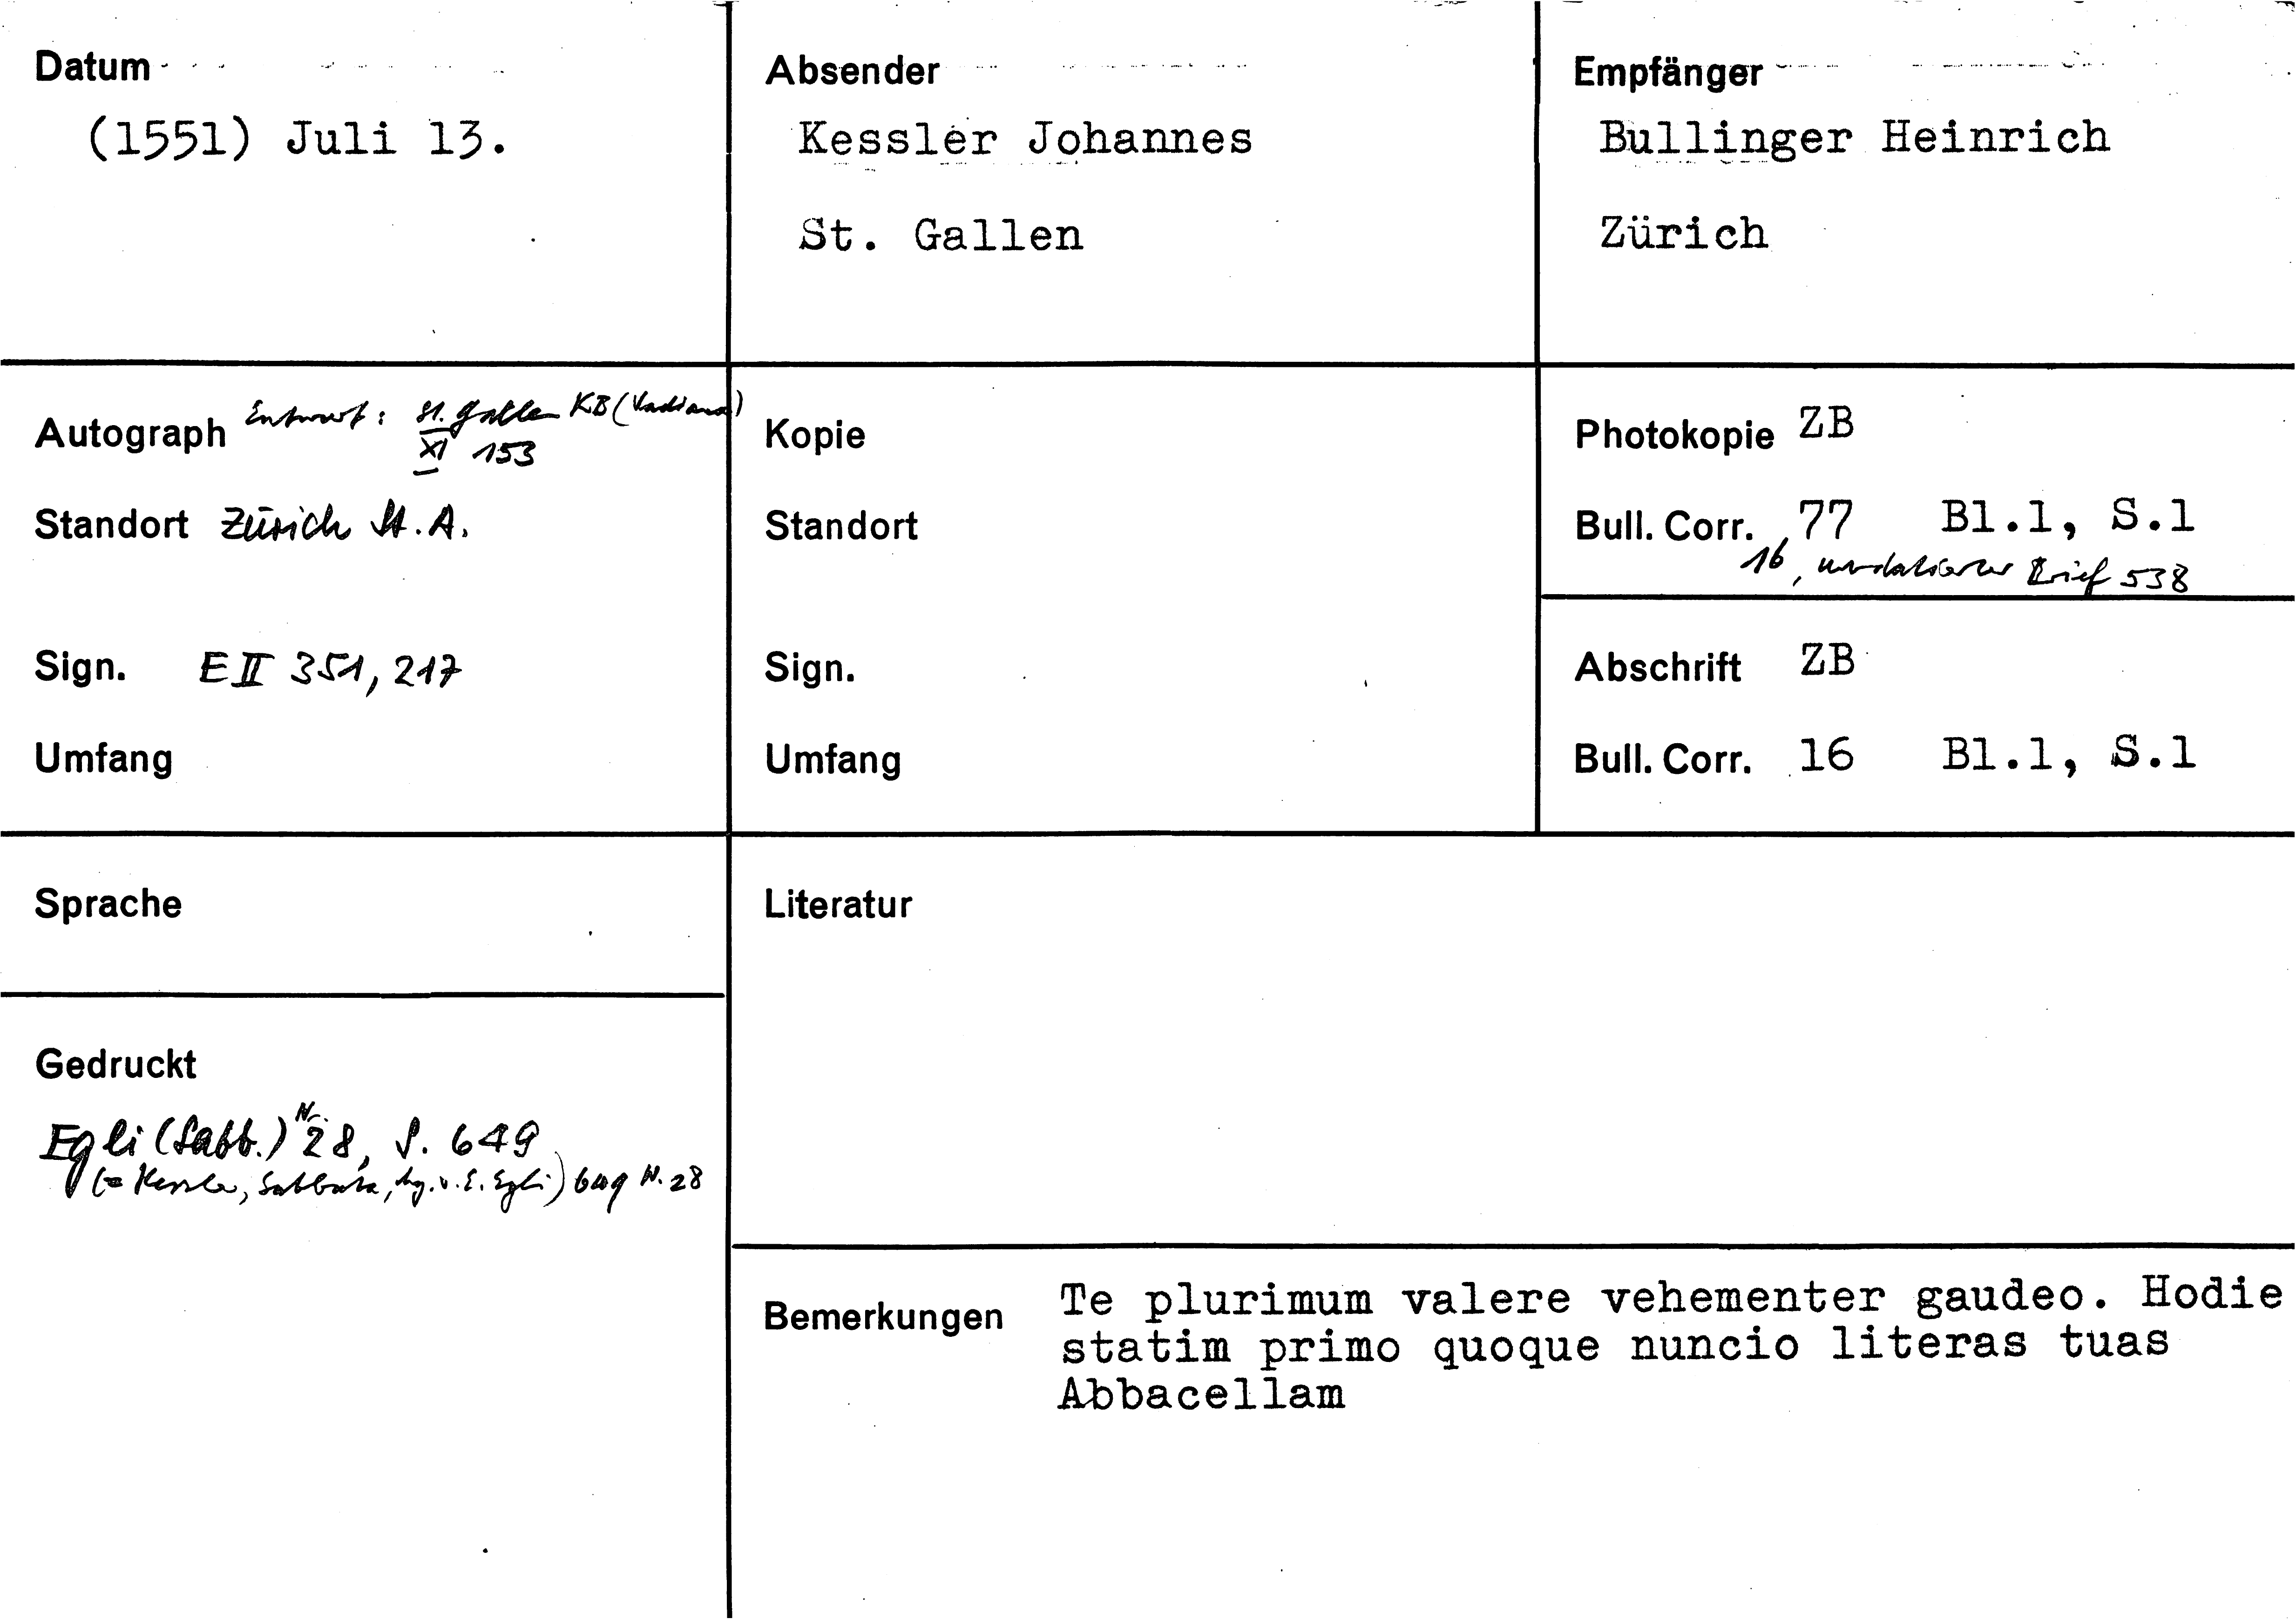 Datum
(1551) Juli 13.
Absender
Kessler Johannes
St. Gallen
Empfänger
Bullinger Heinrich
Zürich
Autograph Entwurf: St. Gallen KB (Vadiana)
XI 153
Standort Zürich St. A.
Sign. E II 351, 217
Umfang
Kopie
Standort
Sign.
Umfang
Photokopie ZB
Bull. Corr. 77 Bl.1, S.1
16, undatierter Brief 538
Abschrift ZB
Bull. Corr. 16 Bl.1, S.1
Sprache
Literatur
Gedruckt
Egli (Sabb.) Nr. 28, S. 649
(= Kessler, Sabbata, hg. v. E. Egli) 649 N. 28
Bemerkungen Te plurimum valere vehementer gaudeo. Hodie
statim primo quoque nuncio literas tuas
Abbacellam